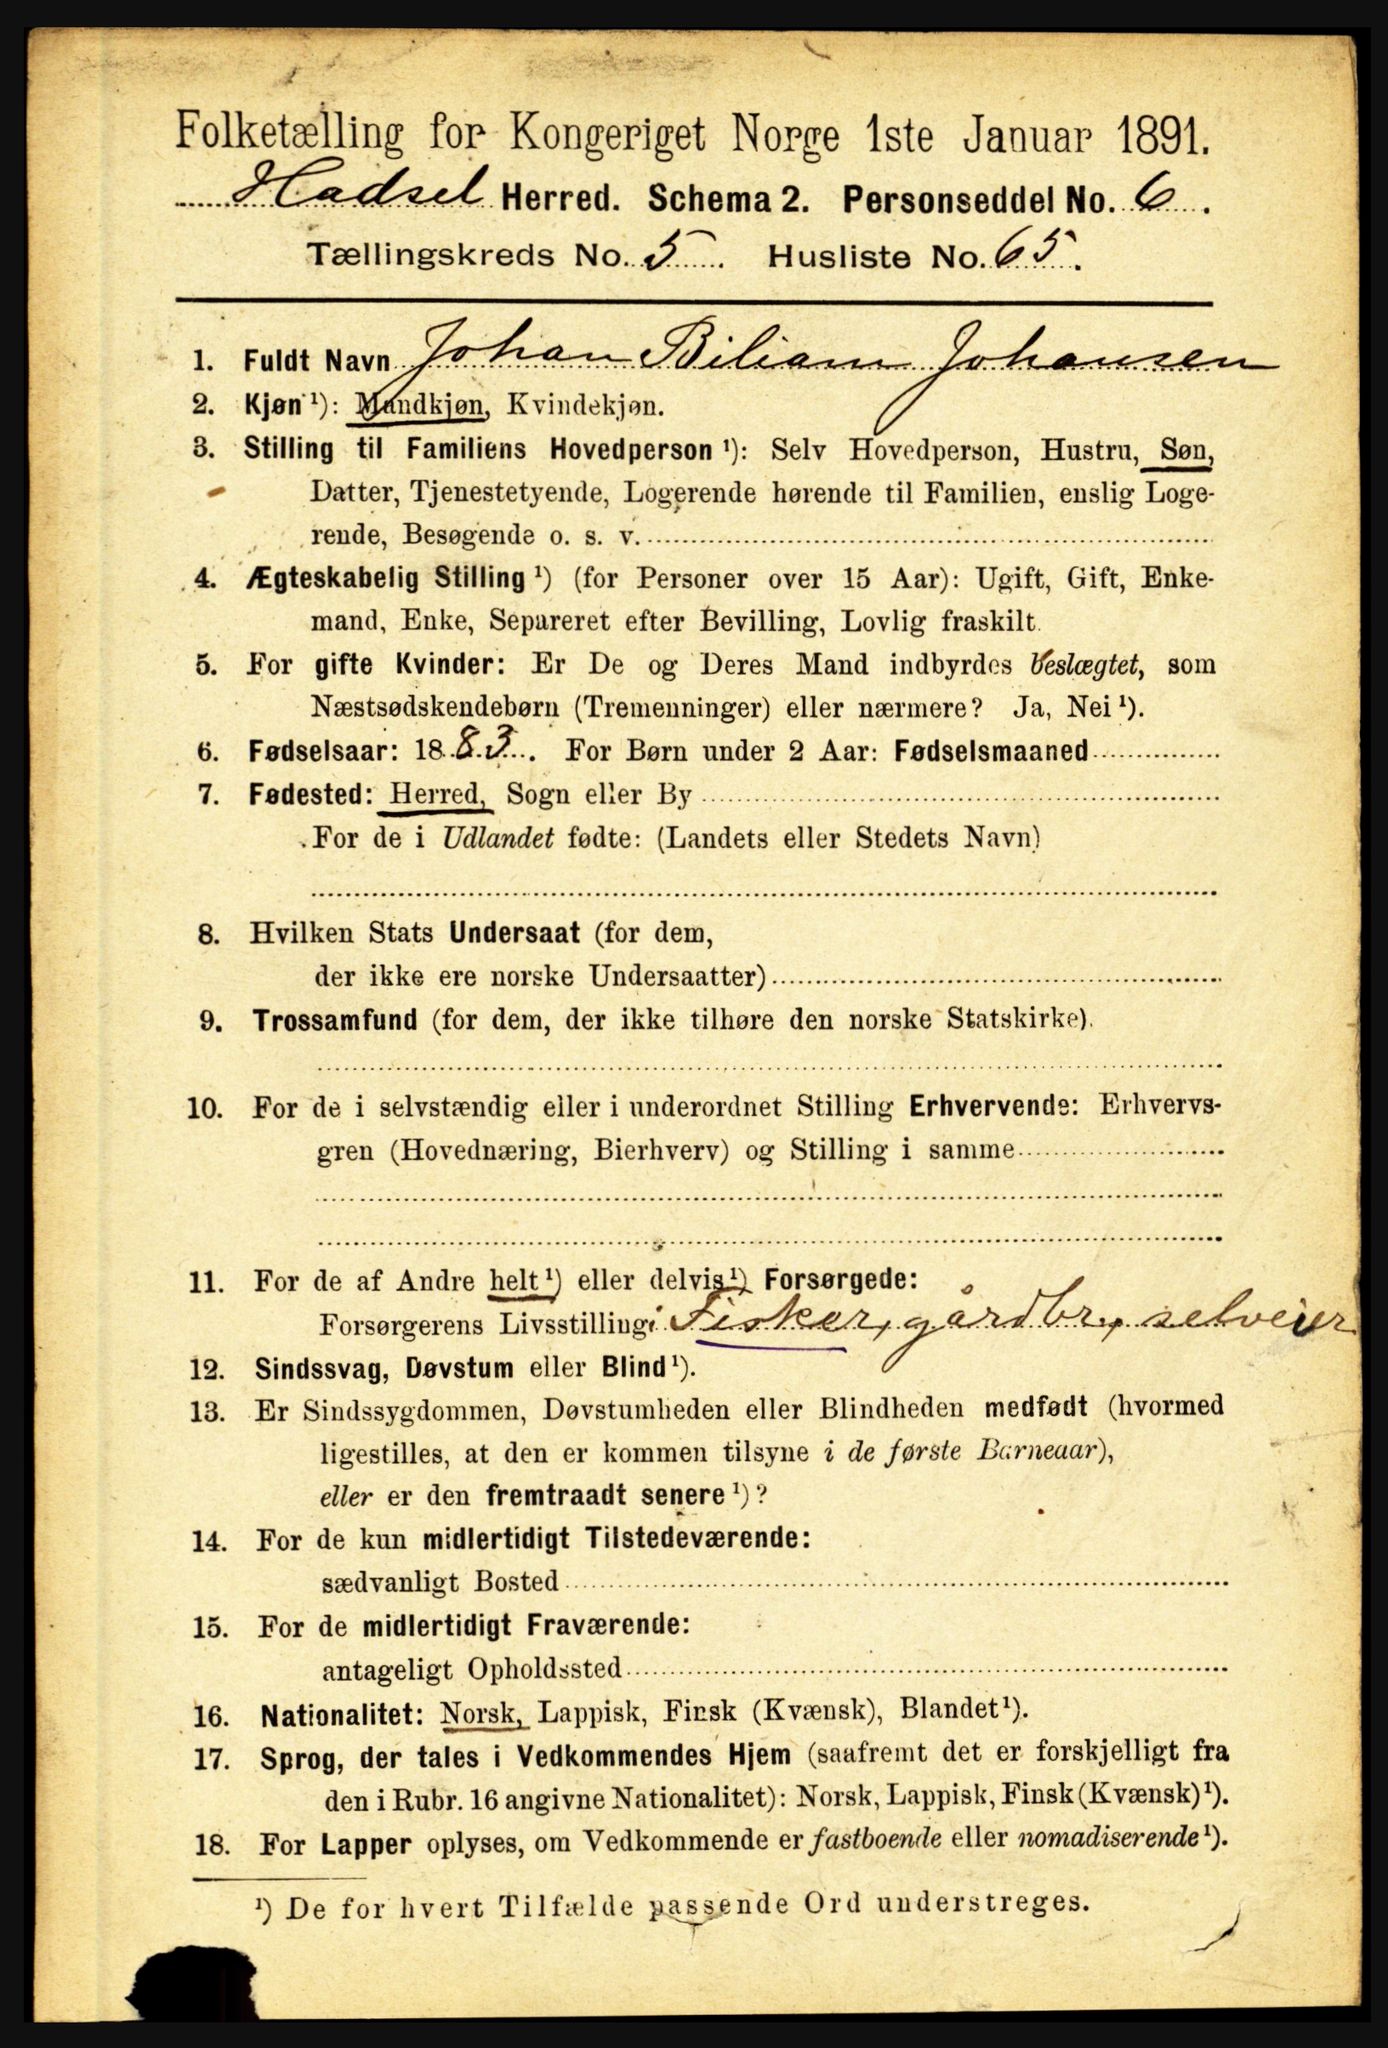 Folketælling for Kongeriget Norge 1ste Januar 1891.
Hadsel Herred. Schema 2. Personseddel No. 6.
Tællingskreds No. 5. Husliste No. 65.
1. Fuldt Navn Johan Biliam Johansen
2. Kjøn ¹): Mandkjøn, Kvindekjøn.
3. Stilling til Familiens Hovedperson ¹): Selv Hovedperson, Hustru, Søn,
Datter, Tjenestetyende, Logerende hørende til Familien, enslig Loge-
rende, Besøgende o. s. v.
4. Ægteskabelig Stilling ¹) (for Personer over 15 Aar): Ugift, Gift, Enke-
mand, Enke, Separeret efter Bevilling, Lovlig fraskilt.
5. For gifte Kvinder: Er De og Deres Mand indbyrdes beslægtet, som
Næstsødskendebørn (Tremenninger) eller nærmere? Ja, Nei ¹).
6. Fødselsaar: 1883. For Børn under 2 Aar: Fødselsmaaned
7. Fødested: Herred, Sogn eller By
For de i Udlandet fødte: (Landets eller Stedets Navn)
8. Hvilken Stats Undersaat (for dem,
der ikke ere norske Undersaatter)
9. Trossamfund (for dem, der ikke tilhøre den norske Statskirke).
10. For de i selvstændig eller i underordnet Stilling Erhvervende: Erhvervs-
gren (Hovednæring, Bierhverv) og Stilling i samme
11. For de af Andre helt ¹) eller delvis ¹) Forsørgede:
Forsørgerens Livsstilling: Fisker, gårdbr, selveier
12. Sindssvag, Døvstum eller Blind ¹).
13. Er Sindssygdommen, Døvstumheden eller Blindheden medfødt (hvormed
ligestilles, at den er kommen tilsyne i de første Barneaar),
eller er den fremtraadt senere ¹)?
14. For de kun midlertidigt Tilstedeværende:
sædvanligt Bosted
15. For de midlertidigt Fraværende:
antageligt Opholdssted
16. Nationalitet: Norsk, Lappisk, Finsk (Kvænsk), Blandet ¹).
17. Sprog, der tales i Vedkommendes Hjem (saafremt det er forskjelligt fra
den i Rubr. 16 angivne Nationalitet): Norsk, Lappisk, Finsk (Kvænsk) ¹).
18. For Lapper oplyses, om Vedkommende er fastboende eller nomadiserende ¹).
¹) De for hvert Tilfælde passende Ord understreges.